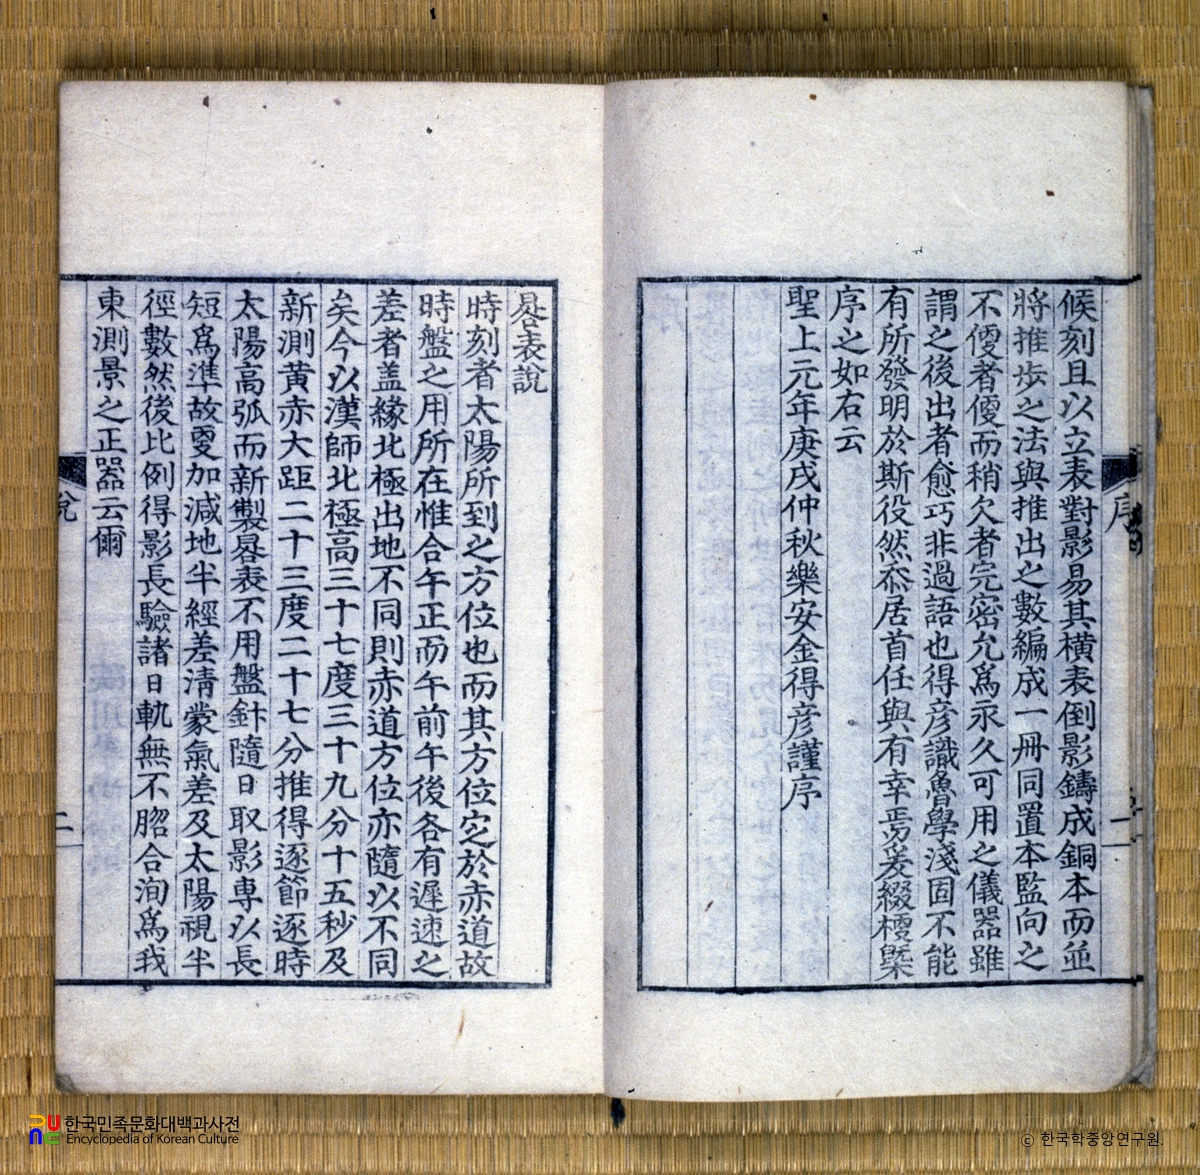 候刻且以立表對影易其橫表倒影鑄成銅本而並
將推步之法與推出之數編成一冊同置本監向之
不便者便而稍欠者完密允爲永久可用之儀器雖
謂之後出者愈巧非過語也得彦識魯學淺固不能
有所發明於斯役然忝居首任與有幸焉爰綴梗槩
序之如右云
聖上元年庚戌仲秋樂安金得彦謹序
序
一
晷表說
時刻者太陽所到之方位也而其方位定於赤道故
時盤之用所在惟合午正而午前午後各有遲速之
差者盖緣北極出地不同則赤道方位亦隨以不同
矣今以漢師北極高三十七度三十九分十五秒及
新測黃赤大距二十三度二十七分推得逐節逐時
太陽高弧而新製晷表不用盤針隨日取影專以長
短爲準故更加減地半經差淸蒙氣差及太陽視半
徑數然後比例得影長驗諸日軌無不脗合洵爲我
東測景之正器云爾
說
한국민족문화대백과사전
Encyclopedia of Korean Culture
© 한국학중앙연구원.